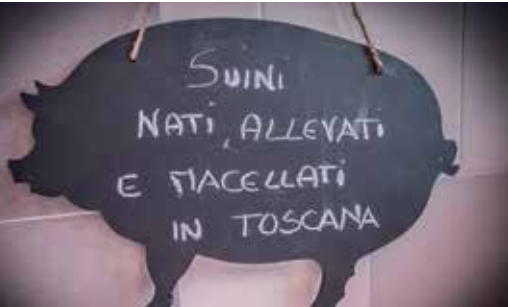 SUINI
NATI, ALLEVATI
E MACELLATI
IN TOSCANA